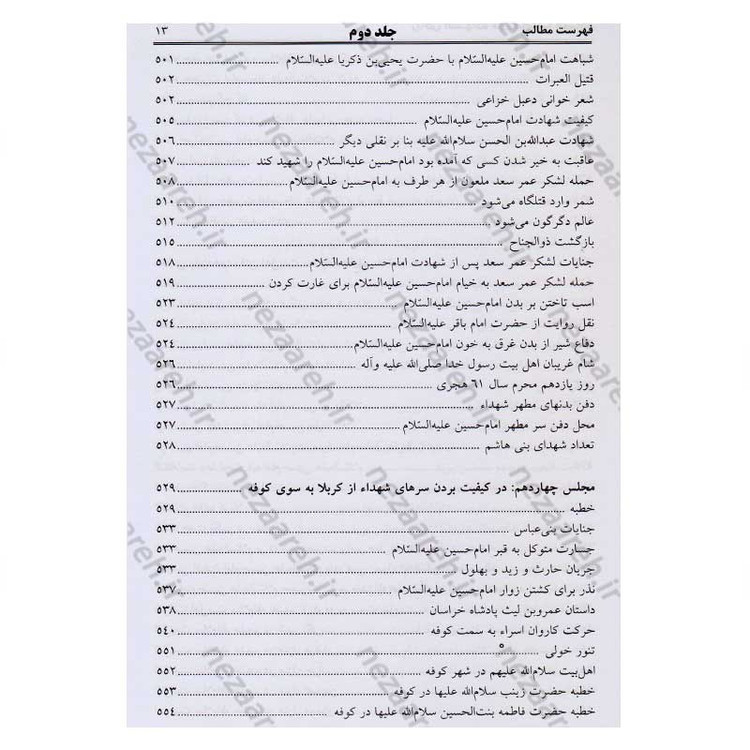 فهرست مطالب جلد دوم ۱۳
شباهت امام‌حسین علیه‌السّلام با حضرت یحیی‌بن ذکریا علیه‌السّلام ۵۰۱
قتیل العبرات ۵۰۲
شعر خوانی دعبل خزاعی ۵۰۲
کیفیت شهادت امام‌حسین علیه‌السّلام ۵۰۵
شهادت عبدالله‌بن الحسن سلام‌الله علیه بنا بر نقلی دیگر ۵۰۶
عاقبت به خیر شدن کسی که آمده بود امام‌حسین علیه‌السّلام را شهید کند ۵۰۷
حمله لشکر عمر سعد ملعون از هر طرف به امام‌حسین علیه‌السّلام ۵۰۸
شمر وارد قتلگاه می‌شود ۵۱۰
عالم دگرگون می‌شود ۵۱۲
بازگشت ذوالجناح ۵۱۵
جنایات لشکر عمر سعد پس از شهادت امام‌حسین علیه‌السّلام ۵۱۸
حمله لشکر عمر سعد به خیام امام‌حسین علیه‌السّلام برای غارت کردن ۵۱۹
اسب تاختن بر بدن امام‌حسین علیه‌السّلام ۵۲۳
نقل روایت از حضرت امام باقر علیه‌السّلام ۵۲۴
دفاع شیر از بدن غرق به خون امام‌حسین علیه‌السّلام ۵۲۴
شام غریبان اهل بیت رسول خدا صلی‌الله علیه وآله ۵۲۶
روز یازدهم محرم سال ۶۱ هجری ۵۲۶
دفن بدنهای مطهر شهداء ۵۲۷
محل دفن سر مطهر امام‌حسین علیه‌السّلام ۵۲۷
تعداد شهدای بنی هاشم ۵۲۸
مجلس چهاردهم: در کیفیت بردن سرهای شهداء از کربلا به سوی کوفه ۵۲۹
خطبه ۵۲۹
جنایات بنی‌عباس ۵۳۳
جسارت متوکل به قبر امام‌حسین علیه‌السّلام ۵۳۳
جریان حارث و زید و بهلول ۵۳۳
نذر برای کشتن زوار امام‌حسین علیه‌السّلام ۵۳۷
داستان عمروبن لیث پادشاه خراسان ۵۳۸
حرکت کاروان اسراء به سمت کوفه ۵۴۰
تنور خولی ۵۵۱
اهل‌بیت سلام‌الله علیهم در شهر کوفه ۵۵۲
خطبه حضرت زینب سلام‌الله علیها در کوفه ۵۵۳
خطبه حضرت فاطمه بنت‌الحسین سلام‌الله علیها در کوفه ۵۵۴
nezaareh.ir